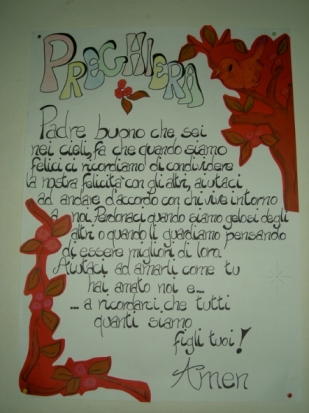 PREGHIERA
Padre buono che sei
nei cieli, fa che quando siamo
felici ci ricordiamo di condividere
la nostra felicità con gli altri, aiutaci
ad andare d'accordo con chi vive intorno
a noi. Perdonaci quando siamo gelosi degli
altri o quando li guardiamo pensando
di essere migliori di loro.
Aiutaci ad amarli come tu
hai amato noi e...
... a ricordarci che tutti
quanti siamo
figli tuoi!
Amen